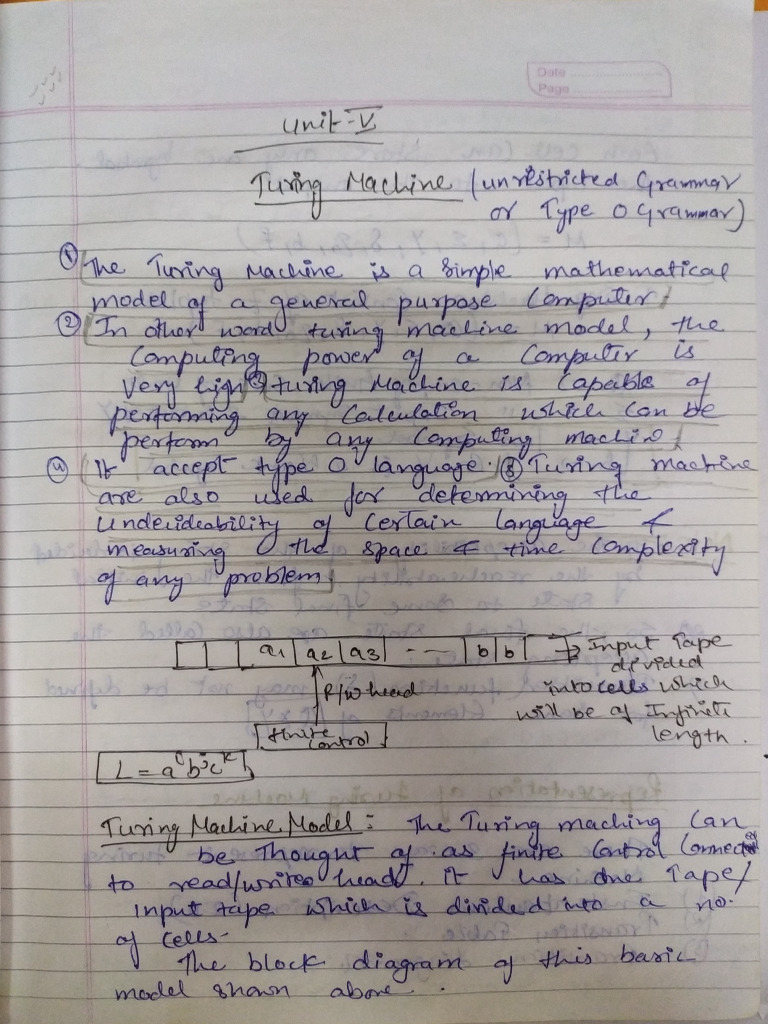 Date
Page
Unit-V
Turing Machine (unrestricted Grammar
or Type 0 Grammar)
① The Turing Machine is a simple mathematical
model of a general purpose Computer.
② In other word turing machine model, the
Computing power of a Computer is
Very high ③ turing Machine is Capable of
performing any Calculation which can be
perform by any Computing machin
④ It accept type 0 language. ⑤ Turing machine
are also used for determining the
Undecideability of Certain language &
measuring the space & time Complexity
of any problem
a1 a2 a3 --- b b → Input Tape
divided
into cells which
will be of Infinite
length.
R/W head
finite
control
L = a^i b^j c^k
Turing Machine Model: The Turing maching Can
be Thought of as finite Control Connected
to read/write head. It has one Tape/
input tape which is divided into a no.
of Cells-
The block diagram of this basic
model shown above.